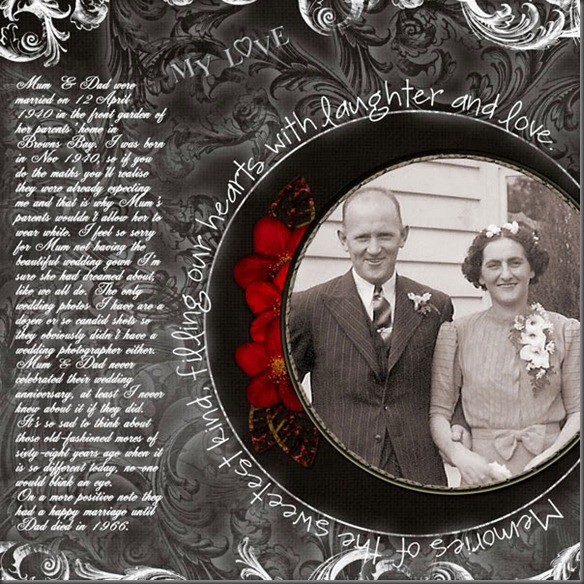 My LOVE
Mum & Dad were
married on 12 April
1940 in the front garden of
her parents' home in
Browns Bay. I was born
in Nov 1940, so if you
do the maths you'll realise
they were already expecting
me and that is why Mum's
parents wouldn't allow her to
wear white. I feel so sorry
for Mum not having the
beautiful wedding gown I'm
sure she had dreamed about,
like we all do. The only
wedding photos I have are a
dozen or so candid shots so
they obviously didn't have a
wedding photographer either.
Mum & Dad never
celebrated their wedding
anniversary, at least I never
knew about it if they did.
It's so sad to think about
those old-fashioned mores of
sixty-eight years ago when it
is so different today, no-one
would blink an eye.
On a more positive note they
had a happy marriage until
Dad died in 1966.
Memories of the sweetest kind, filling our hearts with laughter and love.